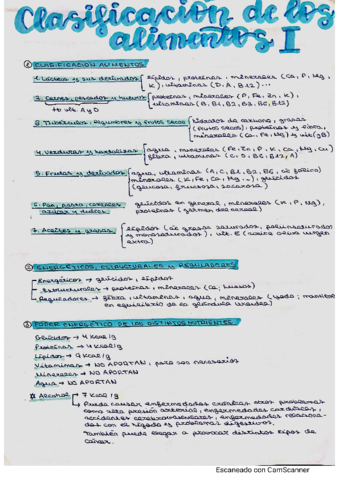 Clasificación de los
alimentos I
① CLASIFICACIÓN ALIMENTOS
1. Lácteos y sus derivados { lípidos, proteínas, minerales (Ca, P, Mg,
K), vitaminas (D, A, B12)...
2. Carnes, pescados y huevos { proteínas, minerales (P, Fe, Zn, K),
vitaminas (B, B1, B2, B3, B6, B12)
Vit. A y D
3. Tubérculos, legumbres y frutos secos { hidratos de carbono, grasas
(frutos secos), proteínas y fibra,
minerales (Ca, Fe, Mg) y vit (B)
4. Verduras y hortalizas { agua, minerales (Fe, Zn, P, K, Ca, Mg, Cu)
fibra, vitaminas (C, D, B6, B12, A)
5. Frutas y derivados { agua, vitaminas (A, C, B1, B2, B6, ác fólico)
minerales (K, Fe, Ca, Mg...) glúcidos
(glucosa, fructosa, sacarosa)
6. Pan, pasta, cereales, glúcidos en general, minerales (K, P, Mg),
azúcar y dulces proteínas (germen del cereal)
7. Aceites y grasas { lípidos (ác grasos saturados, poliinsaturados
y monoinsaturados), vit. E (aceite oliva virgen
extra)
② ENERGÉTICOS, ESTRUCTURALES Y REGULADORES
Energéticos → glúcidos, lípidos
Estructurales → proteínas, minerales (Ca, huesos)
Reguladores → fibra, vitaminas, agua, minerales (yodo; mantiene
en equilibrio de la glándula tiroides)
③ PODER ENERGÉTICO DE LOS DISTINTOS NUTRIENTES
Glúcidos → 4 Kcal/g
Proteínas → 4 Kcal/g
Lípidos → 9 Kcal/g
Vitaminas → NO APORTAN, pero son necesarios
Minerales → NO APORTAN
Agua → NO APORTAN
Alcohol 7 Kcal/g
Puede causar enfermedades crónicas, otros problemas
como alta presión arterial, enfermedades cardíacas,
accidentes cerebrovasculares, enfermedades relaciona-
das con el hígado y problemas digestivos.
También puede llegar a provocar distintos tipos de
cáncer.
Escaneado con CamScanner